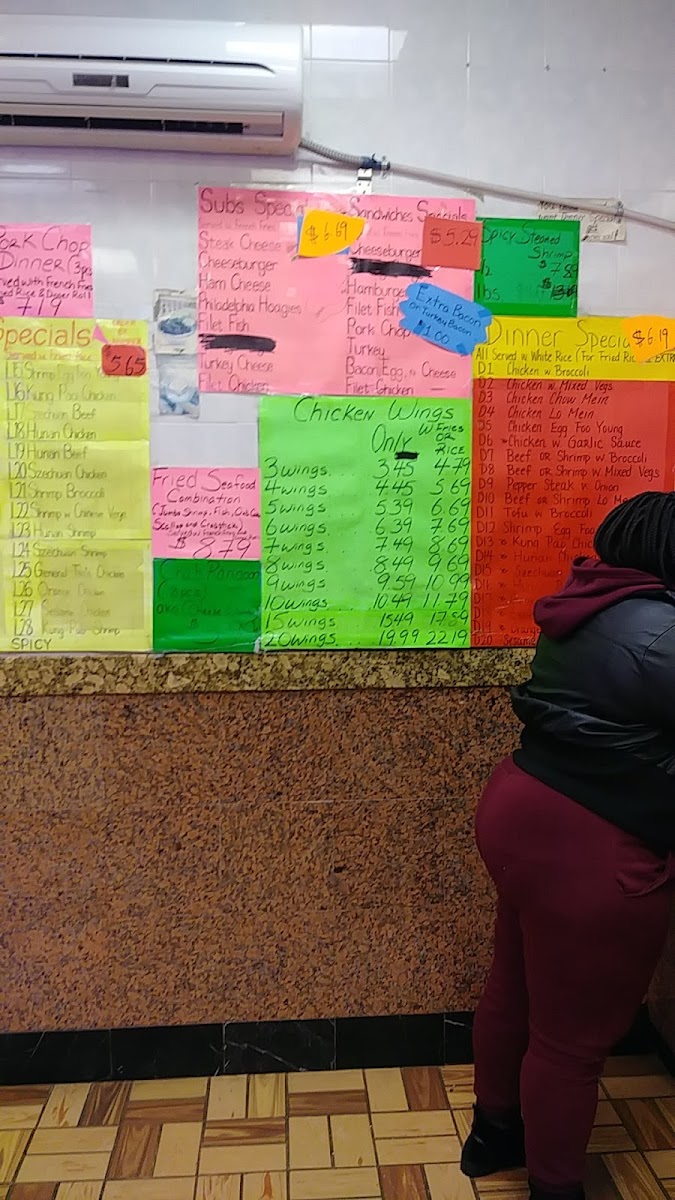 Pork Chop
Dinner (3pcs
Served with French Fries
Fried Rice & Dinner Roll
7.19
Specials
$5.65
L15 Shrimp Egg Foo
L16 Kung Pao Chicken
L17 Szechuan Beef
L18 Hunan Chicken
L19 Hunan Beef
L20 Szechuan Chicken
L21 Shrimp Broccoli
L22 Shrimp w Chinese Vegs
L23 Hunan Shrimp
L24 Szechuan Shrimp
L25 General Tso's Chicken
L26 Orange Chicken
L27 Sesame Chicken
L28 Kung Pao Shrimp
SPICY
Subs Special
$6.69
Steak Cheese
Cheeseburger
Ham Cheese
Philadelphia Hoagies
Filet Fish
Turkey Cheese
Filet Chicken
Sandwiches Specials
$5.29
Cheeseburger
Hamburger
Filet Fish
Pork Chop
Turkey
Bacon, Egg n Cheese
Filet Chicken
Extra Bacon
or Turkey Bacon
$1.00
Spicy Steamed
Shrimp
lbs
Fried Seafood
Combination
(Jumbo Shrimp, Fish, Crab Cake
Scallop and Crabstick)
$8.79
Chicken Wings
Only
w Fries
or
Rice
3 wings 3.45 4.79
4 wings 4.45 5.69
5 wings 5.39 6.69
6 wings 6.39 7.69
7 wings 7.49 8.69
8 wings 8.49 9.69
9 wings 9.59 10.99
10 wings 10.49 11.79
15 wings 15.49 17.59
20 wings 19.99 22.19
Dinner Special
$6.19
All Served w White Rice (For Fried Rice
D1 Chicken w Broccoli
D2 Chicken w Mixed Vegs
D3 Chicken Chow Mein
D4 Chicken Lo Mein
D5 Chicken Egg Foo Young
D6 Chicken w Garlic Sauce
D7 Beef or Shrimp w Broccoli
D8 Beef or Shrimp w Mixed Vegs
D9 Pepper Steak w Onion
D10 Beef or Shrimp Lo Me
D11 Tofu w Broccoli
D12 Shrimp Egg Foo
D13 Kung Pao Chic
D14 Hunan
D15 Szechuan
D20 Sesame